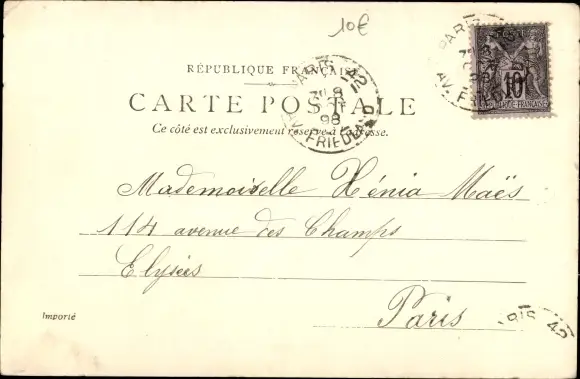 10€
RÉPUBLIQUE FRANÇAISE
CARTE POSTALE
Ce côté est exclusivement réservé à l'adresse.
PARIS 42
98
AV. FRIEDLAND
PARIS
10
RÉPUBLIQUE FRANÇAISE
Mademoiselle Xénia Maës
114 avenue des Champs
Elysées
Paris
Importé
RIS 42